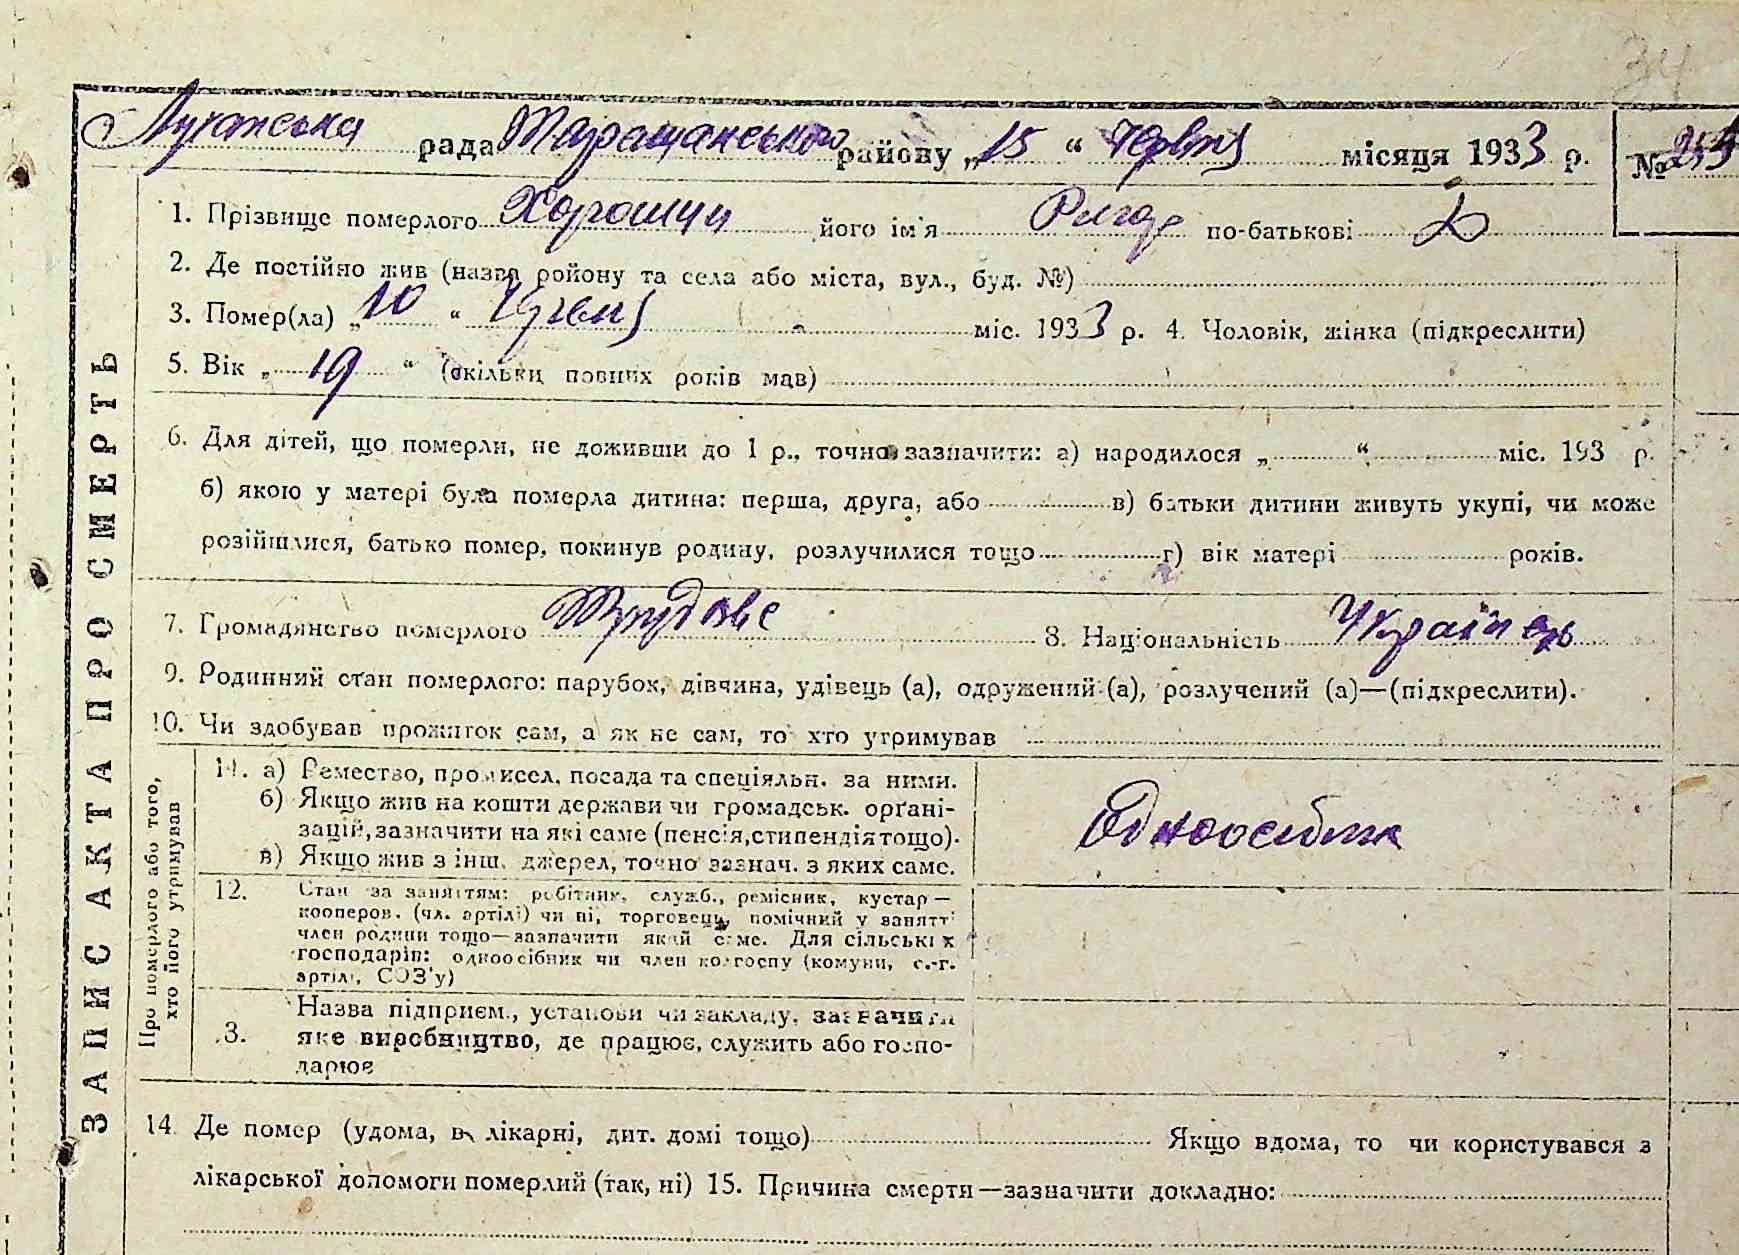 34
Луганська рада Таращанського району „15“ Червня місяця 1933 р. №
1. Прізвище померлого Хорошун його ім'я по-батькові
2. Де постійно жив (назва ройону та села або міста, вул., буд. №)
3. Помер(ла) „10“ міс. 1933 р. 4. Чоловік, жінка (підкреслити)
5. Вік „19“ (скільки повних років мав)
6. Для дітей, що померли, не доживши до 1 р., точно зазначити: а) народилося „ “ міс. 193 р.
б) якою у матері була померла дитина: перша, друга, або в) батьки дитини живуть укупі, чи може
розійшлися, батько помер, покинув родину, розлучилися тощо г) вік матері років.
7. Громадянство померлого Трудове 8. Національність Українець
9. Родинний стан померлого: парубок, дівчина, удівець (а), одружений (а), розлучений (а)—(підкреслити).
10. Чи здобував прожиток сам, а як не сам, то хто утримував
ЗАПИС АКТА ПРО СМЕРТЬ
Про померлого або того,
хто його утримував
11. а) Ремество, промисел, посада та спеціяльн. за ними.
б) Якщо жив на кошти держави чи громадськ. орґані-
зацій, зазначити на які саме (пенсія, стипендія тощо).
в) Якщо жив з інш. джерел, точно зазнач. з яких саме.
Одноосібник
12. Стан за заняттям: робітник, служб., ремісник, кустар—
кооперов. (чл. артілі) чи ні, торговець, помічний у занятті
член родини тощо—зазначити який саме. Для сільських
господарів: одноосібник чи член колгоспу (комуни, с.-г.
артілі, СОЗ'у)
3. Назва підприєм., установи чи закладу, зазначити
яке виробництво, де працює, служить або госпо-
дарює
14. Де помер (удома, в лікарні, дит. домі тощо) Якщо вдома, то чи користувався з
лікарської допомоги померлий (так, ні) 15. Причина смерти—зазначити докладно: